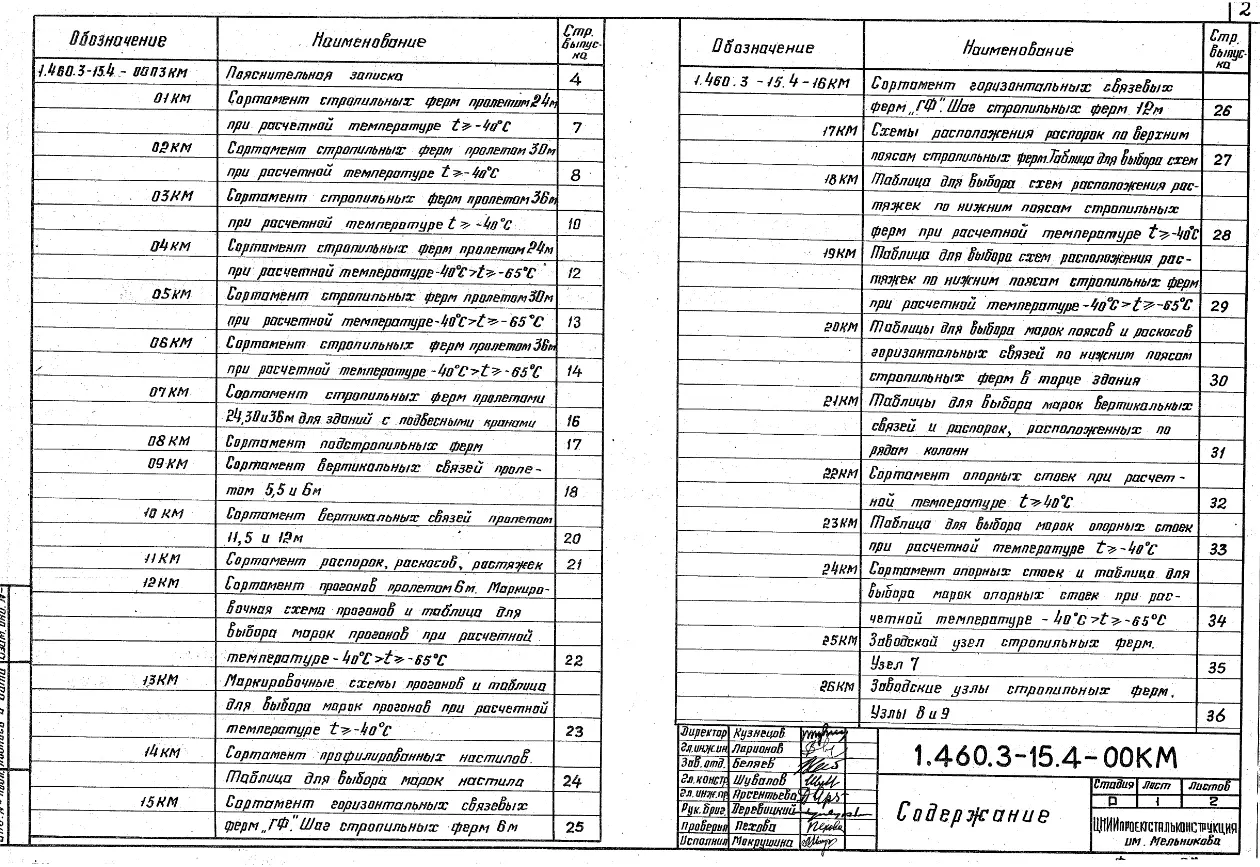 2
Обозначение Наименование Стр. выпуска
1.460.3-15.4-00ПЗКМ Пояснительная записка 4
01КМ Сортамент стропильных ферм пролетом 24м
при расчетной температуре t⩾-40°С 7
02КМ Сортамент стропильных ферм пролетом 30м
при расчетной температуре t⩾-40°С 8
03КМ Сортамент стропильных ферм пролетом 36м
при расчетной температуре t⩾-40°С 10
04КМ Сортамент стропильных ферм пролетом 24м
при расчетной температуре -40°С>t⩾-65°С 12
05КМ Сортамент стропильных ферм пролетом 30м
при расчетной температуре -40°С>t⩾-65°С 13
06КМ Сортамент стропильных ферм пролетом 36м
при расчетной температуре -40°С>t⩾-65°С 14
07КМ Сортамент стропильных ферм пролетами
24,30и36м для зданий с подвесными кранами 16
08КМ Сортамент подстропильных ферм 17
09КМ Сортамент вертикальных связей проле-
том 5,5 и 6м 18
10КМ Сортамент вертикальных связей пролетом
11,5 и 12м 20
11КМ Сортамент распорок, раскосов, растяжек 21
12КМ Сортамент прогонов пролетом 6м. Маркиро-
вочная схема прогонов и таблица для
выбора марок прогонов при расчетной
температуре -40°С>t⩾-65°С 22
13КМ Маркировочные схемы прогонов и таблица
для выбора марок прогонов при расчетной
температуре t⩾-40°С 23
14КМ Сортамент профилированных настилов.
Таблица для выбора марок настила 24
15КМ Сортамент горизонтальных связевых
ферм „ГФ". Шаг стропильных ферм 6м 25
Обозначение Наименование Стр. выпуска
1.460.3-15.4-16КМ Сортамент горизонтальных связевых
ферм „ГФ". Шаг стропильных ферм 12м 26
17КМ Схемы расположения распорок по верхним
поясам стропильных ферм. Таблица для выбора схем 27
18КМ Таблица для выбора схем расположения рас-
тяжек по нижним поясам стропильных
ферм при расчетной температуре t⩾-40°С 28
19КМ Таблица для выбора схем расположения рас-
тяжек по нижним поясам стропильных ферм
при расчетной температуре -40°С>t⩾-65°С 29
20КМ Таблицы для выбора марок поясов и раскосов
горизонтальных связей по нижним поясам
стропильных ферм в торце здания 30
21КМ Таблицы для выбора марок вертикальных
связей и распорок, расположенных по
рядам колонн 31
22КМ Сортамент опорных стоек при расчет-
ной температуре t⩾40°С 32
23КМ Таблица для выбора марок опорных стоек
при расчетной температуре t⩾-40°С 33
24КМ Сортамент опорных стоек и таблица для
выбора марок опорных стоек при рас-
четной температуре -40°С>t⩾-65°С 34
25КМ Заводской узел стропильных ферм.
Узел 7 35
26КМ Заводские узлы стропильных ферм.
Узлы 8 и 9 36
Директор Кузнецов
Гл.инж.ин Ларионов
Зав.отд. Беляев
Гл.констр. Шувалов
Гл.инж.пр Арсентьева
Рук.бриг. Деревицкий
Проверил Пехова
Исполнил Мокрушина
1.460.3-15.4-00КМ
Содержание
Стадия Лист Листов
Р 1 2
ЦНИИПРОЕКТСТАЛЬКОНСТРУКЦИЯ
им. Мельникова